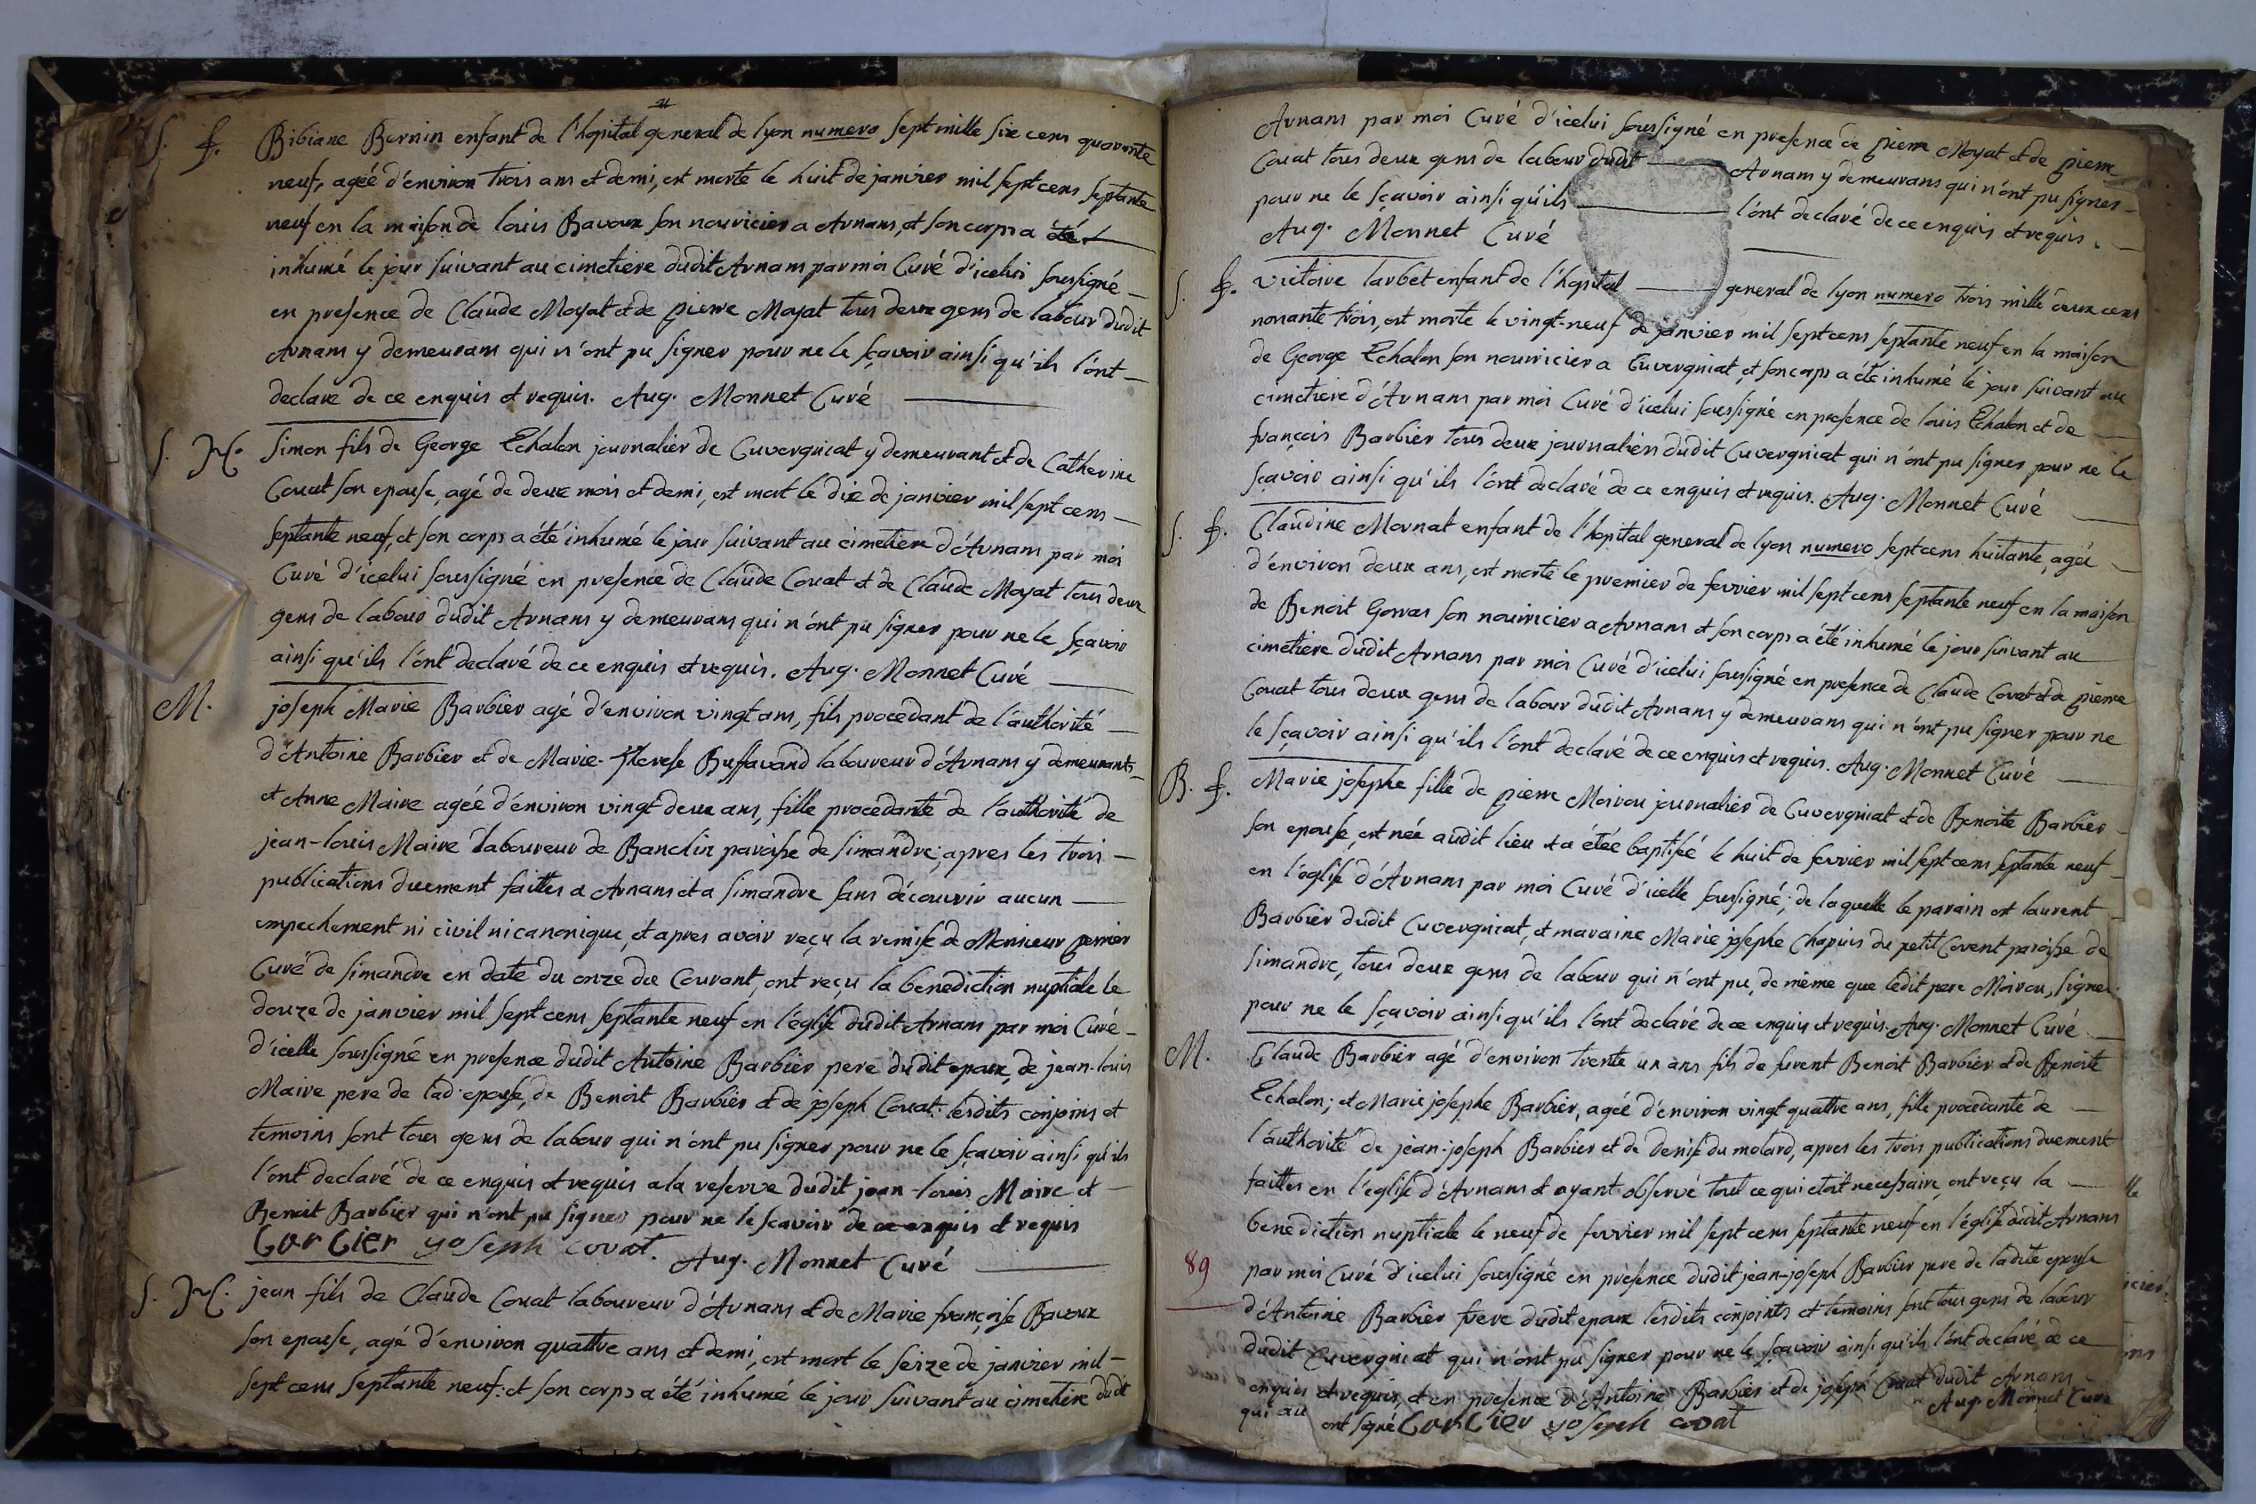 S. f. Bibiane Bernin enfant de l'hopital general de lyon numero sept mille six cens quarante
neuf, agée d'environ trois ans et demi, est morte le huit de janvier mil sept cens septante
neuf en la maison de louis Bavoux son nourricier a Arnans, et son corps a été
inhumé le jour suivant au cimetiere dudit Arnans par moi Curé d'icelui soussigné
en presence de Claude Moyat et de pierre Moyat tous deux gens de labour dudit
Arnans y demeurans qui n'ont pu signer pour ne le sçavoir ainsi qu'ils l'ont
declaré de ce enquis et requis. Aug. Monnet Curé
S. M. Simon fils de George Echalon journalier de Cuvergniat y demeurant et de Catherine
Couat son epouse, agé de deux mois et demi, est mort le dix de janvier mil sept cens
septante neuf, et son corps a été inhumé le jour suivant au cimetiere d'Arnans par moi
Curé d'icelui soussigné en presence de Claude Couat et de Claude Moyat tous deux
gens de labour dudit Arnans y demeurans qui n'ont pu signer pour ne le sçavoir
ainsi qu'ils l'ont declaré de ce enquis et requis. Aug. Monnet Curé
M. joseph Marie Barbier agé d'environ vingt ans, fils procedant de l'authorité
d'Antoine Barbier et de Marie-Therese Buffavand laboureur d'Arnans y demeurants,
et Anne Maire agée d'environ vingt deux ans, fille procedante de l'authorité de
jean-louis Maire laboureur de Banclin paroisse de simandre; apres les trois
publications duement faittes a Arnans et a simandre sans découvrir aucun
empechement ni civil ni canonique, et apres avoir reçu la remise de Monsieur perrier
Curé de simandre en date du onze du Courant, ont reçu la benediction nuptiale le
douze de janvier mil sept cens septante neuf en l'église dudit Arnans par moi Curé
d'icelle soussigné en presence dudit Antoine Barbier pere dudit epoux, de jean-louis
Maire pere de lad. epouse, de Benoit Barbier et de joseph Couat. lesdits conjoins et
temoins sont tous gens de labour qui n'ont pu signer pour ne le sçavoir ainsi qu'ils
l'ont declaré de ce enquis et requis a la reserve dudit jean-louis Maire et
Benoit Barbier qui n'ont pu signer pour ne le sçavoir de ce enquis et requis
yoseph covat. Aug. Monnet Curé
S. M. jean fils de Claude Couat laboureur d'Arnans et de Marie françoise Bavoux
son epouse, agé d'environ quattre ans et demi, est mort le seize de janvier mil
sept cens septante neuf: et son corps a été inhumé le jour suivant au cimetiere dudit
Arnans par moi Curé d'icelui soussigné en presence de pierre Moyat et de pierre
Couat tous deux gens de labour dudit Arnans y demeurans qui n'ont pu signer
pour ne le sçavoir ainsi qu'ils l'ont declaré de ce enquis et requis.
Aug. Monnet Curé
S. f. victoire larbet enfant de l'hopital general de lyon numero trois mille deux cens
nonante trois, est morte le vingt-neuf de janvier mil sept cens septante neuf en la maison
de George Echalon son nourricier a Cuvergniat, et son corps a été inhumé le jour suivant au
cimetiere d'Arnans par moi Curé d'icelui soussigné en presence de louis Echalon et de
françois Barbier tous deux journaliers dudit Cuvergniat qui n'ont pu signer pour ne le
sçavoir ainsi qu'ils l'ont declaré de ce enquis et requis. Aug. Monnet Curé
S. f. Claudine Mornat enfant de l'hopital general de lyon numero sept cens huitante, agée
d'environ deux ans, est morte le premier de fevrier mil sept cens septante neuf en la maison
de Benoit Gorras son nourricier a Arnans et son corps a été inhumé le jour suivant au
cimetiere dudit Arnans par moi Curé d'icelui soussigné en presence de Claude Couat et de pierre
Couat tous deux gens de labour dudit Arnans y demeurans qui n'ont pu signer pour ne
le sçavoir ainsi qu'ils l'ont declaré de ce enquis et requis. Aug. Monnet Curé
B. f. Marie josephe fille de pierre Moirou journalier de Cuvergniat et de Benoite Barbier
son epouse, est née audit lieu et a étée baptisée le huit de fevrier mil sept cens septante neuf
en l'église d'Arnans par moi Curé d'icelle soussigné; de laquelle le parain est laurent
Barbier dudit Cuvergniat, et maraine Marie josephe Chapuis du petit Corent paroisse de
simandre, tous deux gens de labour qui n'ont pu, de même que ledit pere Moirou, signer
pour ne le sçavoir ainsi qu'ils l'ont declaré de ce enquis et requis. Aug. Monnet Curé
M. Claude Barbier agé d'environ trente un ans fils de furent Benoit Barbier et de Benoite
Echalon; et Marie josephe Barbier, agée d'environ vingt quattre ans, fille procedante de
l'authorité de jean-joseph Barbier et de Denise du molard, apres les trois publications duement
faittes en l'eglise d'Arnans et ayant observé tout ce qui etoit necessaire, ont reçu la
benediction nuptiale le neuf de fevrier mil sept cens septante neuf en l'église dudit Arnans
89 par moi Curé d'icelui soussigné en présence dudit jean-joseph Barbier pere de ladite epouse
d'Antoine Barbier frere dudit epoux lesdits conjoints et temoins sont tous gens de labour
dudit Cuvergniat qui n'ont pu signer pour ne le sçavoir ainsi qu'ils l'ont declaré de ce
enquis et requis, et en presence d'Antoine Barbier et de joseph Couat dudit Arnans
qui ont signé yoseph covat Aug. Monnet Curé